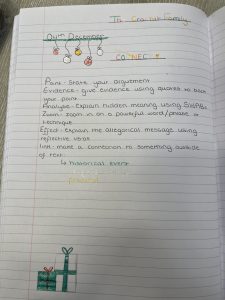 The Cratchit Family
04th December
CONNECT
Point - State your arguement
Evidence - give evidence using quotes to back
your point
Analyse - Explain hidden meaning using
Zoom - zoom in on a powerful word/phrase or
technique
Effect - explain the allegorical message using
reflective verbs
Link - make a connection to something outside
of text:
↳ historical event